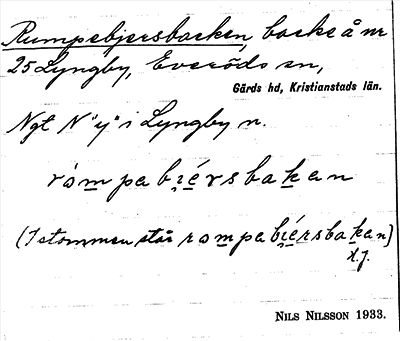 Rumpebjersbacken, backe å nr
25 Lyngby, Everöds sn,
Gärds hd, Kristianstads län.
Ngt N "y" i Lyngby n.
rompabi̯érsbakan
(I stommen står rompabi̯érsbakan)
NILS NILSSON 1933.